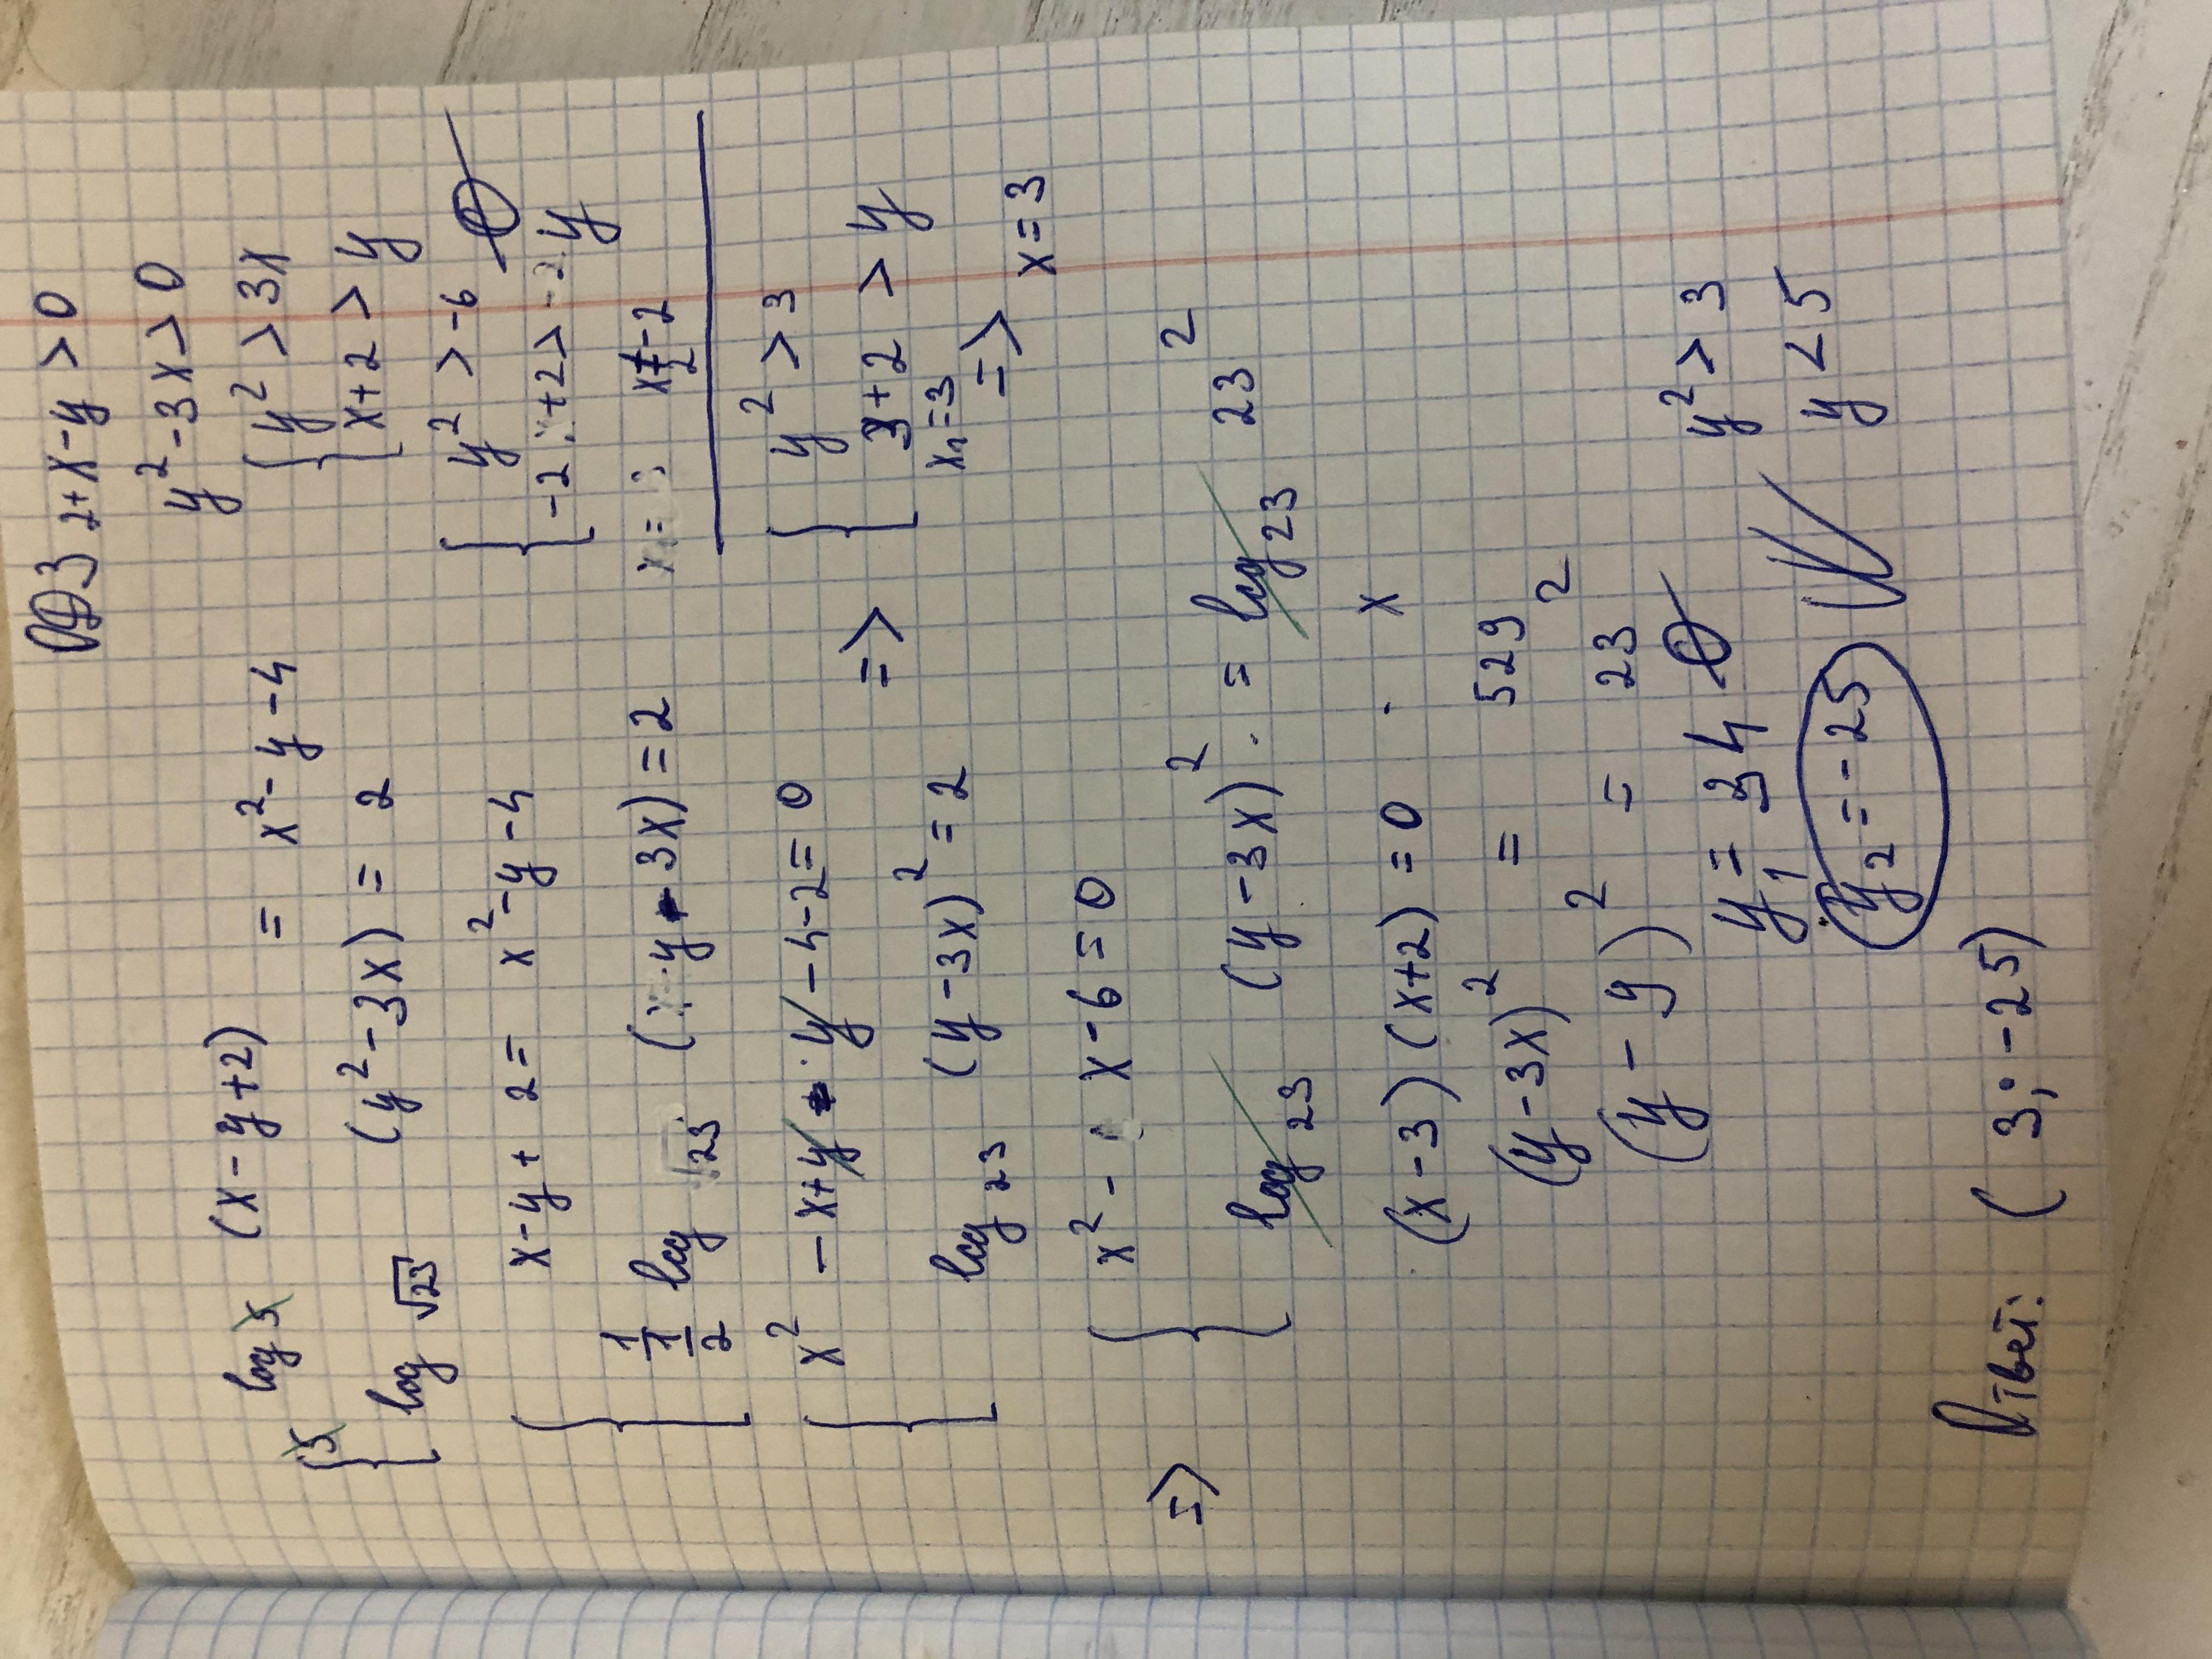 ОДЗ 2+x-y>0
y²-3x>0
{ y²>3x
x+2>y
{ y²>-6
-2+2>-2y
x≠-2
{ y²>3
3+2>y
x₁=3
=> x=3
{ 5^log₅ (x-y+2) = x²-y-4
log√23 (y²-3x) = 2
{ x-y+2= x²-y-4
1/½ log 23 (y-3x)=2
{ x² -x+y-y-4-2=0 =>
log₂₃ (y-3x)²=2
=> { x²-x-6=0
log₂₃ (y-3x)² = log₂₃ 23²
(x-3)(x+2)=0
(y-3x)² = 529
(y-9)² = 23²
y₁=34 ∅ y²>3
y₂=-25 y<5
Ответ: (3;-25)